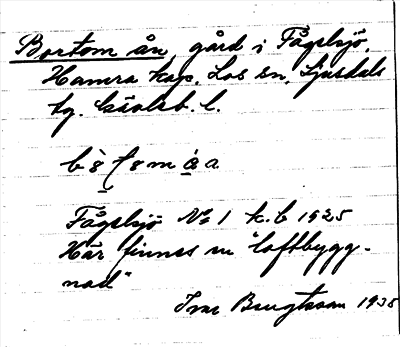 Bortom ån, gård i Fågelsjö,
Hamra kap. Los sn, Ljusdals
tg. Gävleb. l.
Fågelsjö No 1 k.b 1925
Här finnes en "loftbygg-
nad"
Bengtsson 1935